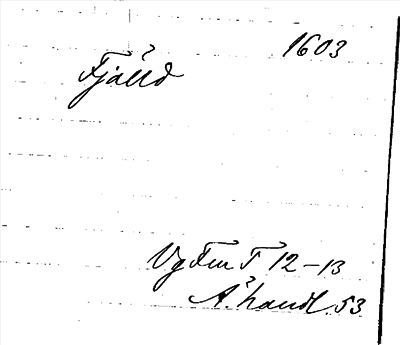 1603
Fjälld
Vg Fm T 12-13
Å. handl. 53